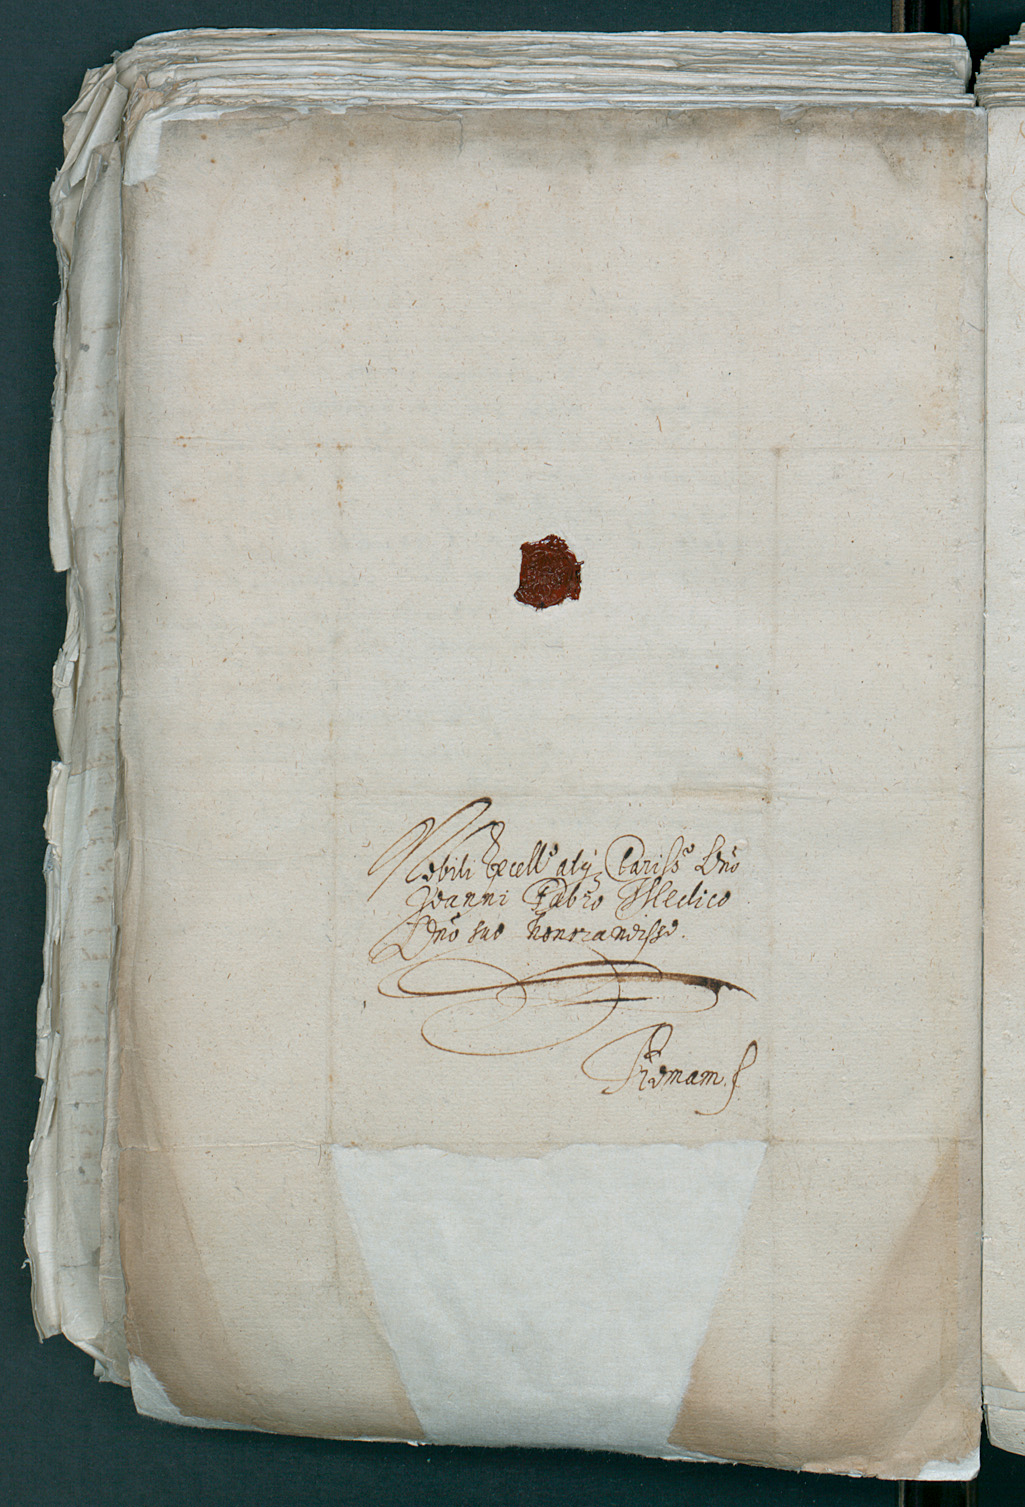 Nobili Excell.º atq; Clariss.º Dño
Joanni Fabro Medico
Dño suo honorandisso.
Romam.